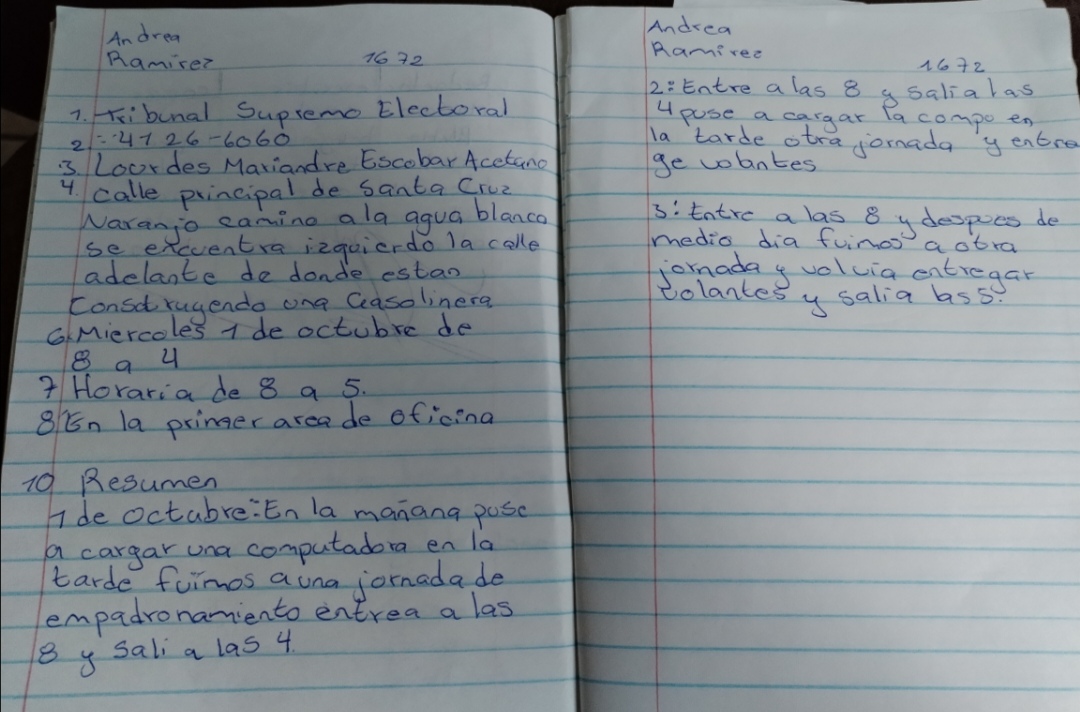 Andrea
Ramirez 1672
1. Tribunal Supremo Electoral
2 = 4126-6060
3 Lourdes Mariandre Escobar Acetano
4. calle principal de Santa Cruz
Naranjo camino a la agua blanca
se encuentra izquierdo la calle
adelante de donde estan
Construyendo una Gasolinera
6 Miercoles 1 de octubre de
8 a 4
7 Horaria de 8 a 5.
8 En la primer area de oficina
10 Resumen
1 de octubre: En la mañana puse
a cargar una computadora en la
tarde fuimos a una jornada de
empadronamiento entrea a las
8 y sali a las 4.
Andrea
Ramirez 1672
2: Entre a las 8 y salia las
4 puse a cargar la compo en
la tarde otra jornada y entre
ge volantes
3: Entre a las 8 y despues de
medio dia fuimos a otra
jornada y volvia entregar
volantes y salia las 5.